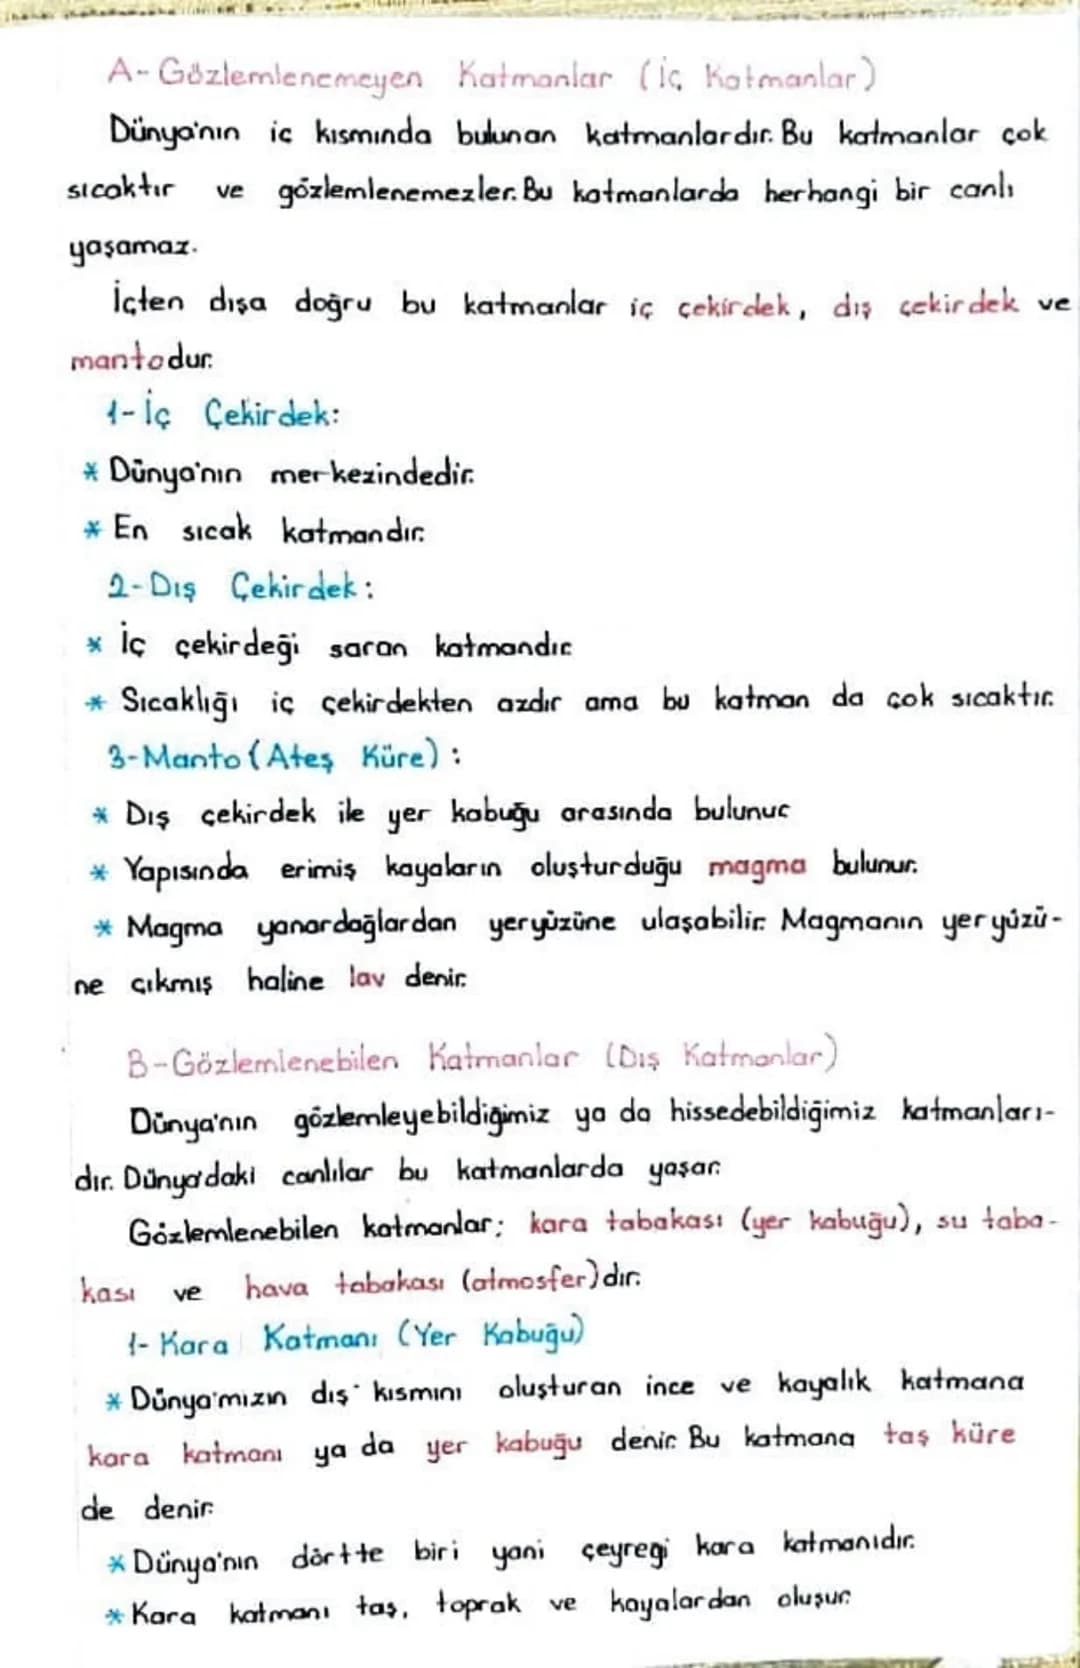 A- Gözlemlenemeyen Katmanlar (İç Katmanlar)
Dünya'nın iç kısmında bulunan katmanlardır. Bu katmanlar çok
sıcaktır ve gözlemlenemezler. Bu katmanlarda herhangi bir canlı
yaşamaz.
İçten dışa doğru bu katmanlar iç çekirdek, dış çekirdek ve
mantodur.
1-İç Çekirdek:
* Dünya'nın merkezindedir.
* En sıcak katmandır.
2-Dış Çekirdek:
* İç çekirdeği saran katmandır.
* Sıcaklığı iç çekirdekten azdır ama bu katman da çok sıcaktır.
3-Manto (Ateş Küre):
* Dış çekirdek ile yer kabuğu arasında bulunur.
* Yapısında erimiş kayaların oluşturduğu magma bulunur.
* Magma yanardağlardan yeryüzüne ulaşabilir. Magmanın yeryüzü-
ne çıkmış haline lav denir.
B-Gözlemlenebilen Katmanlar (Dış Katmanlar)
Dünya'nın gözlemleyebildiğimiz ya da hissedebildiğimiz katmanları-
dır. Dünya'daki canlılar bu katmanlarda yaşar.
Gözlemlenebilen katmanlar; kara tabakası (yer kabuğu), su taba-
kası ve hava tabakası (atmosfer)dır.
1- Kara Katmanı (Yer Kabuğu)
* Dünya'mızın dış kısmını oluşturan ince ve kayalık katmana
kara katmanı ya da yer kabuğu denir. Bu katmana taş küre
de denir.
* Dünya'nın dörtte biri yani çeyregi kara katmanıdır.
* Kara katmanı taş, toprak ve kayalardan oluşur.